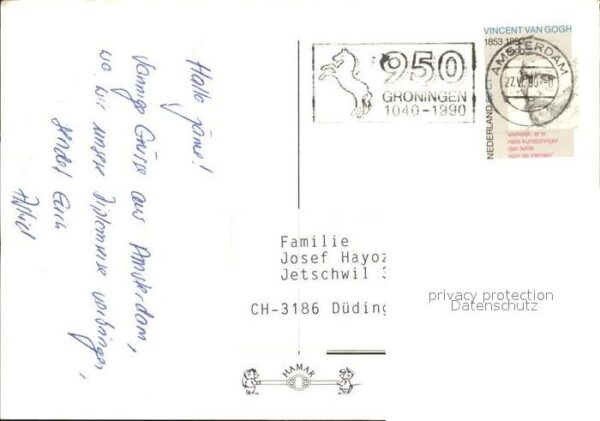 Hallo zäme!
Sonnige Grüsse aus Amsterdam,
wo wir unsere Diplomreise verbringen,
Hindet Euch
950
GRONINGEN
1040-1990
VINCENT VAN GOGH
1853 1890
AMSTERDAM
NEDERLAND
werkelijk, er is
niets kunstzinniger
dan liefde
voor de mensen
Familie
Josef Hayoz
Jetschwil 3
CH-3186 Düding
privacy protection
Datenschutz
HAMAR